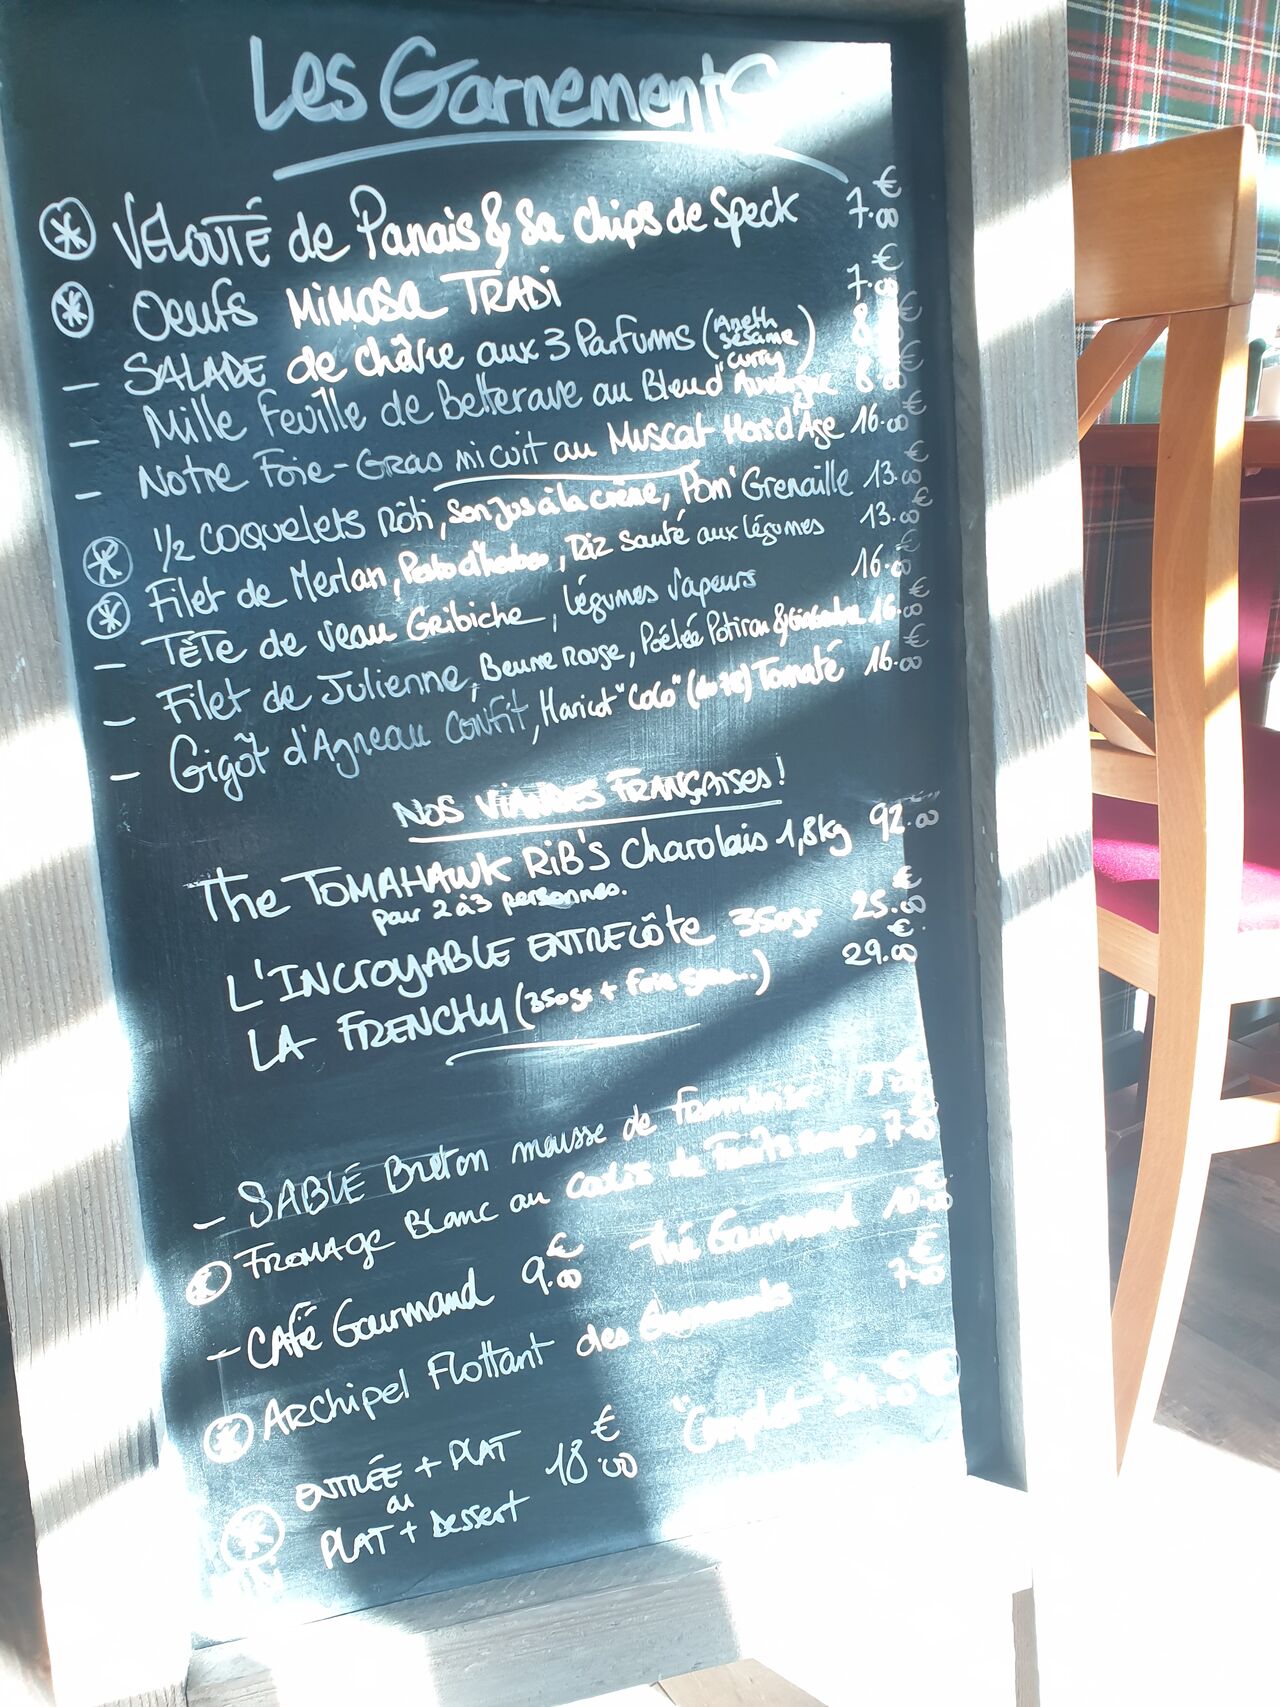 Les Garnements
VELOUTÉ de Panais & sa chips de Speck 7.00 €
Oeufs MiMOSA TRADi 7.00 €
- SALADE de chèvre aux 3 Parfums (Aneth sésame curry) 8
- Mille Feuille de Betterave au Bleu d'Auvergne 8
- Notre Foie-Gras mi cuit au Muscat Hors d'Age 16.00 €
1/2 coquelets Rôti, son jus à la crème, Pom' Grenaille 13.00 €
Filet de Merlan, Pesto d'herbes, Riz sauté aux légumes 13.00 €
- TÊTE de veau Gribiche, légumes vapeurs 16.00 €
- Filet de Julienne, Beurre Rouge, Poêlée Potiron & 16.00 €
- Gigôt d'Agneau Confit, Haricot "Coco" Tomaté 16.00 €
NOS VIANDES FRANÇAISES !
The TOMAHAWK RiB'S Charolais 1,8kg 92.00
pour 2 à 3 personnes.
L'INCROYABLE ENTRECÔTE 350gr 25.00 €
LA FRENCHY (350gr + foie gras..) 29.00 €
- SABLÉ Breton mousse de framboise
FROMAGE BLANC au coulis de Fruits rouges 7.00
- CAFÉ Gourmand 9.00 € Thé Gourmand 10.00 €
ARChipel Flottant des Garnements 7.00 €
ENTRÉE + PLAT
ou 18.00 € "Complet" 24.00 €
PLAT + Dessert